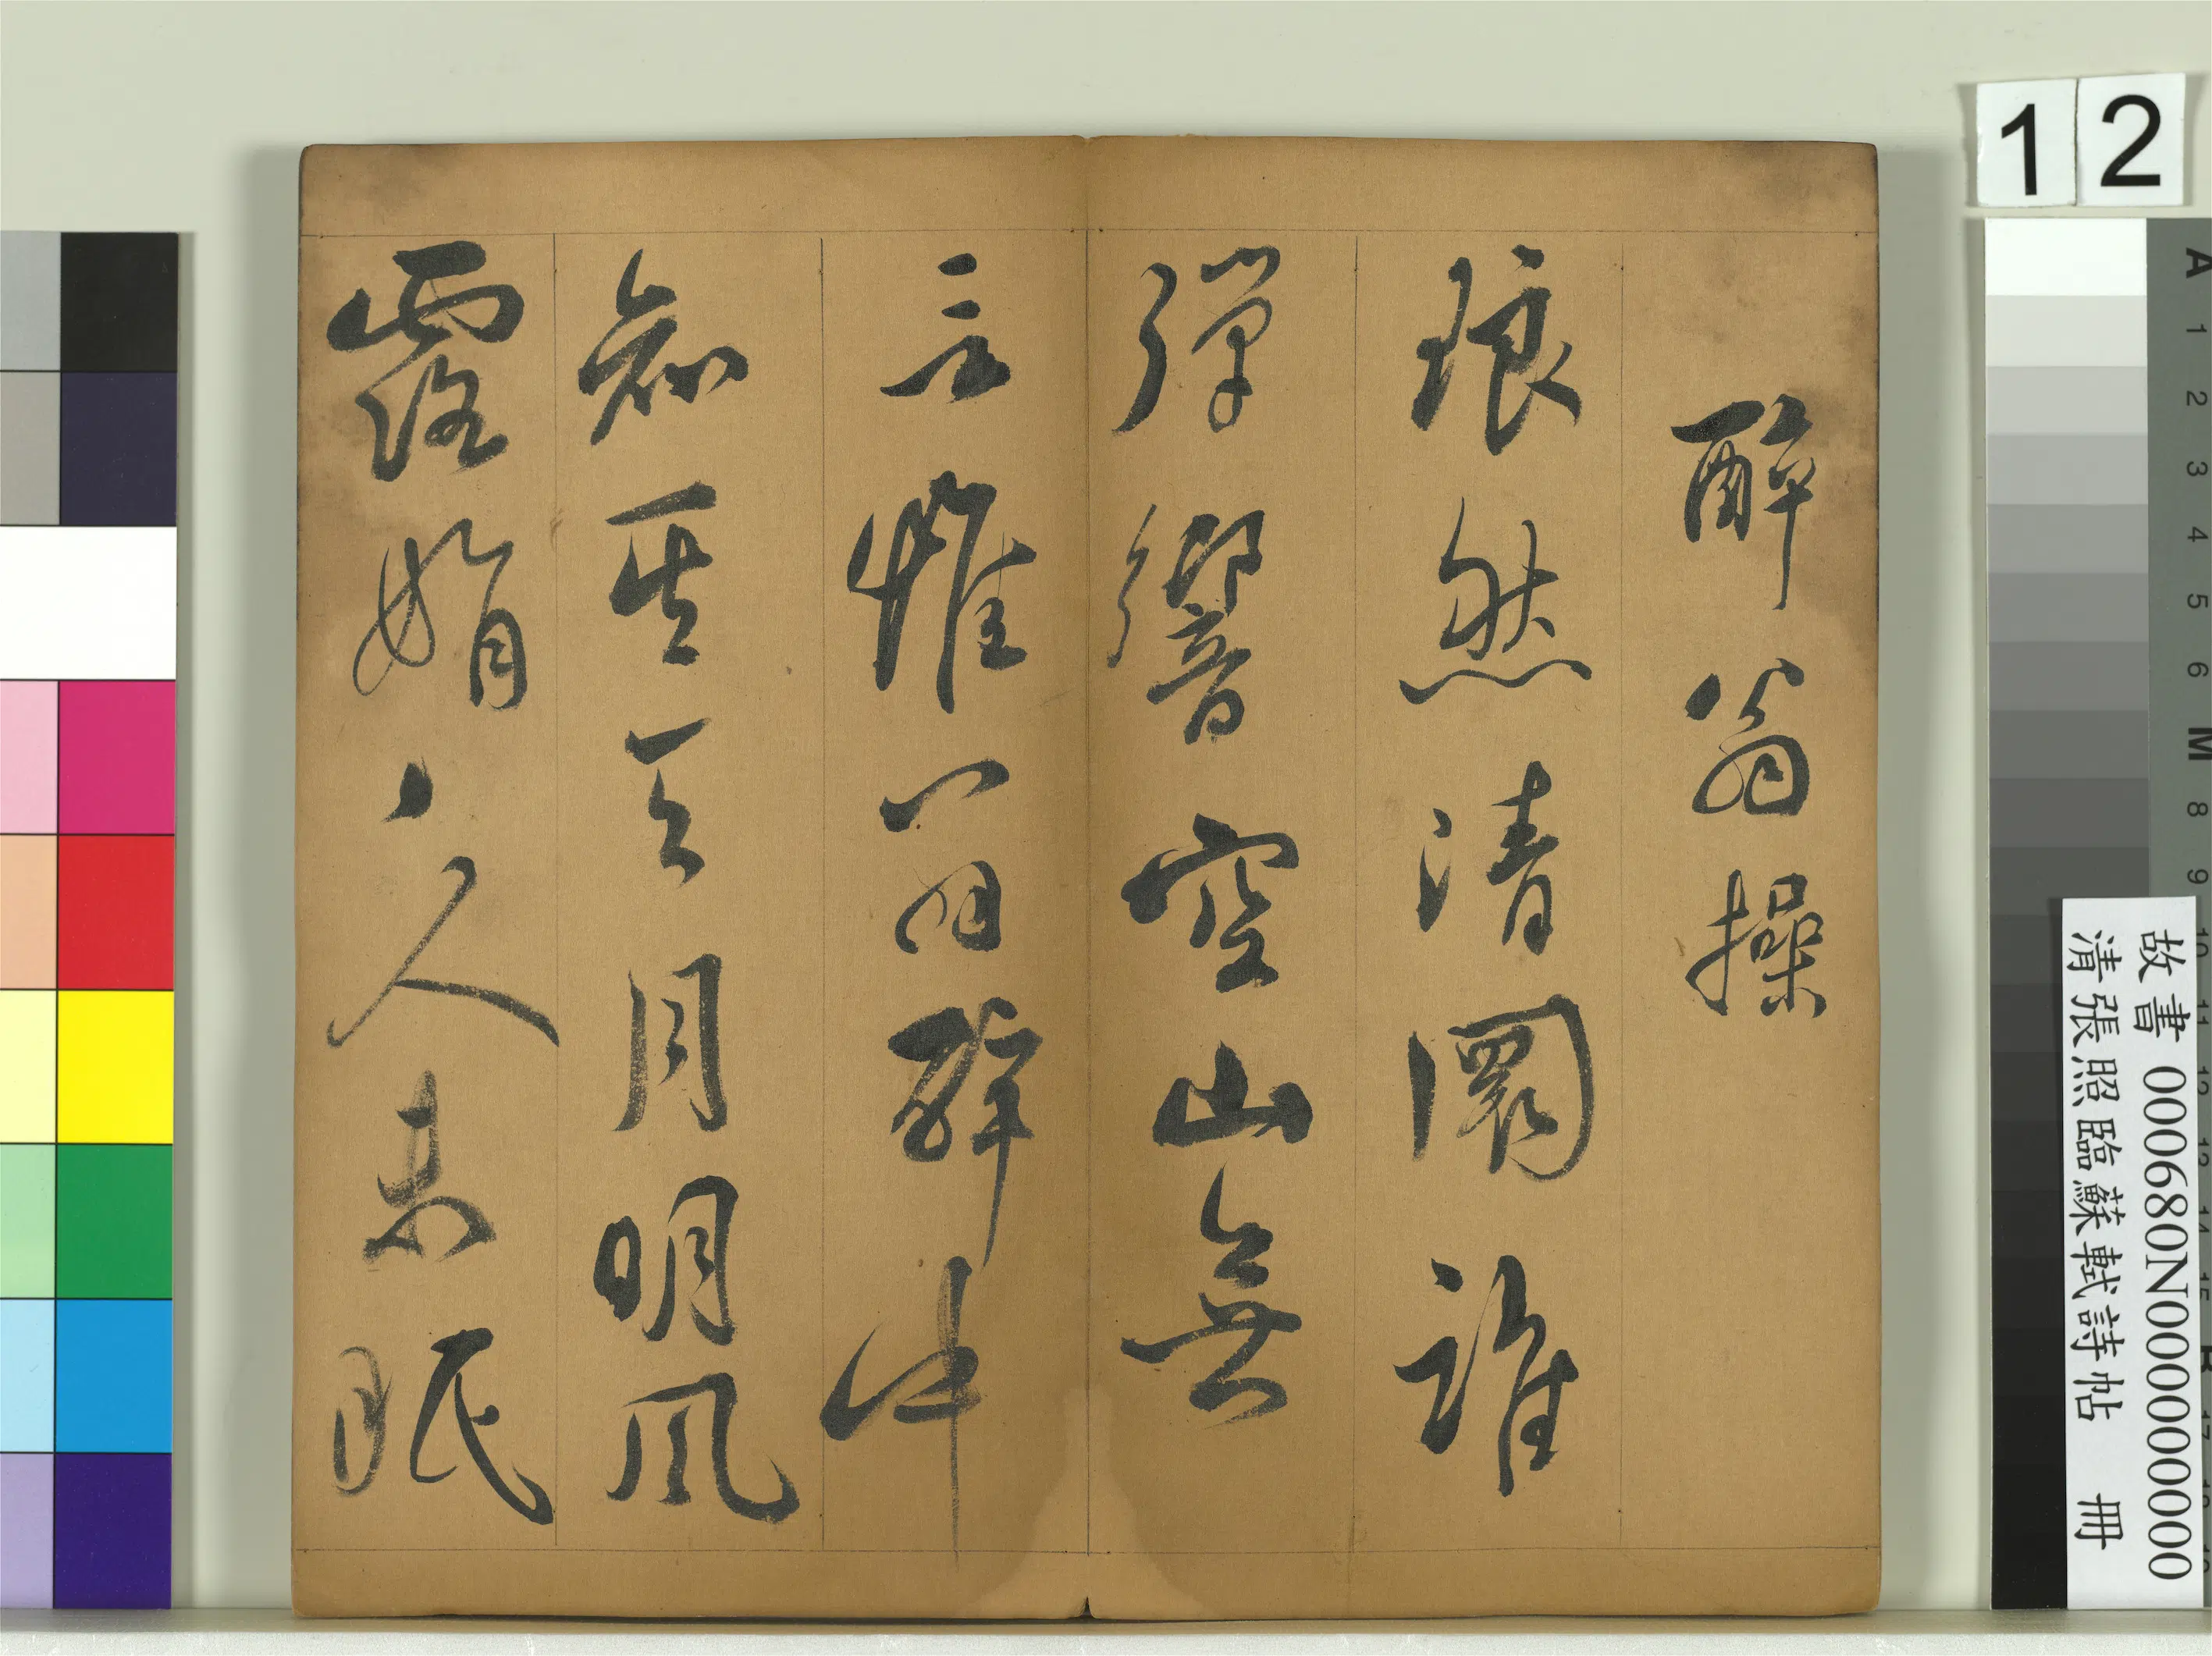 醉翁操
琅然清圜誰
彈響空山無
言惟翁醉中
知其天月明風
露娟〻人未眠
12
故書000680N000000000
清張照臨蘇軾詩帖 冊
A 1 2 3 4 5 6 M 8 9 10 11 12 13 14 15 B 17